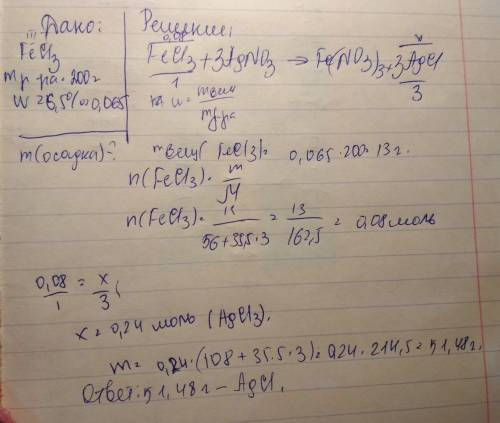 Дано:
III
FeCl3
m р-ра = 200 г
W = 6,5% = 0,065
m(осадка)-?
Решение:
0,08 x
FeCl3 + 3AgNO3 → Fe(NO3)3 + 3AgCl
1 3
W = mвещ / mр-ра
mвещ(FeCl3) = 0,065·200 = 13 г.
n(FeCl3) = m / M
n(FeCl3) = 13 / 56+35,5·3 = 13 / 162,5 = 0,08 моль
0,08 / 1 = x / 3;
x = 0,24 моль (AgCl3).
m = 0,24·(108+35.5·3) = 0,24·214,5 = 51,48 г.
Ответ: 51,48 г - AgCl.